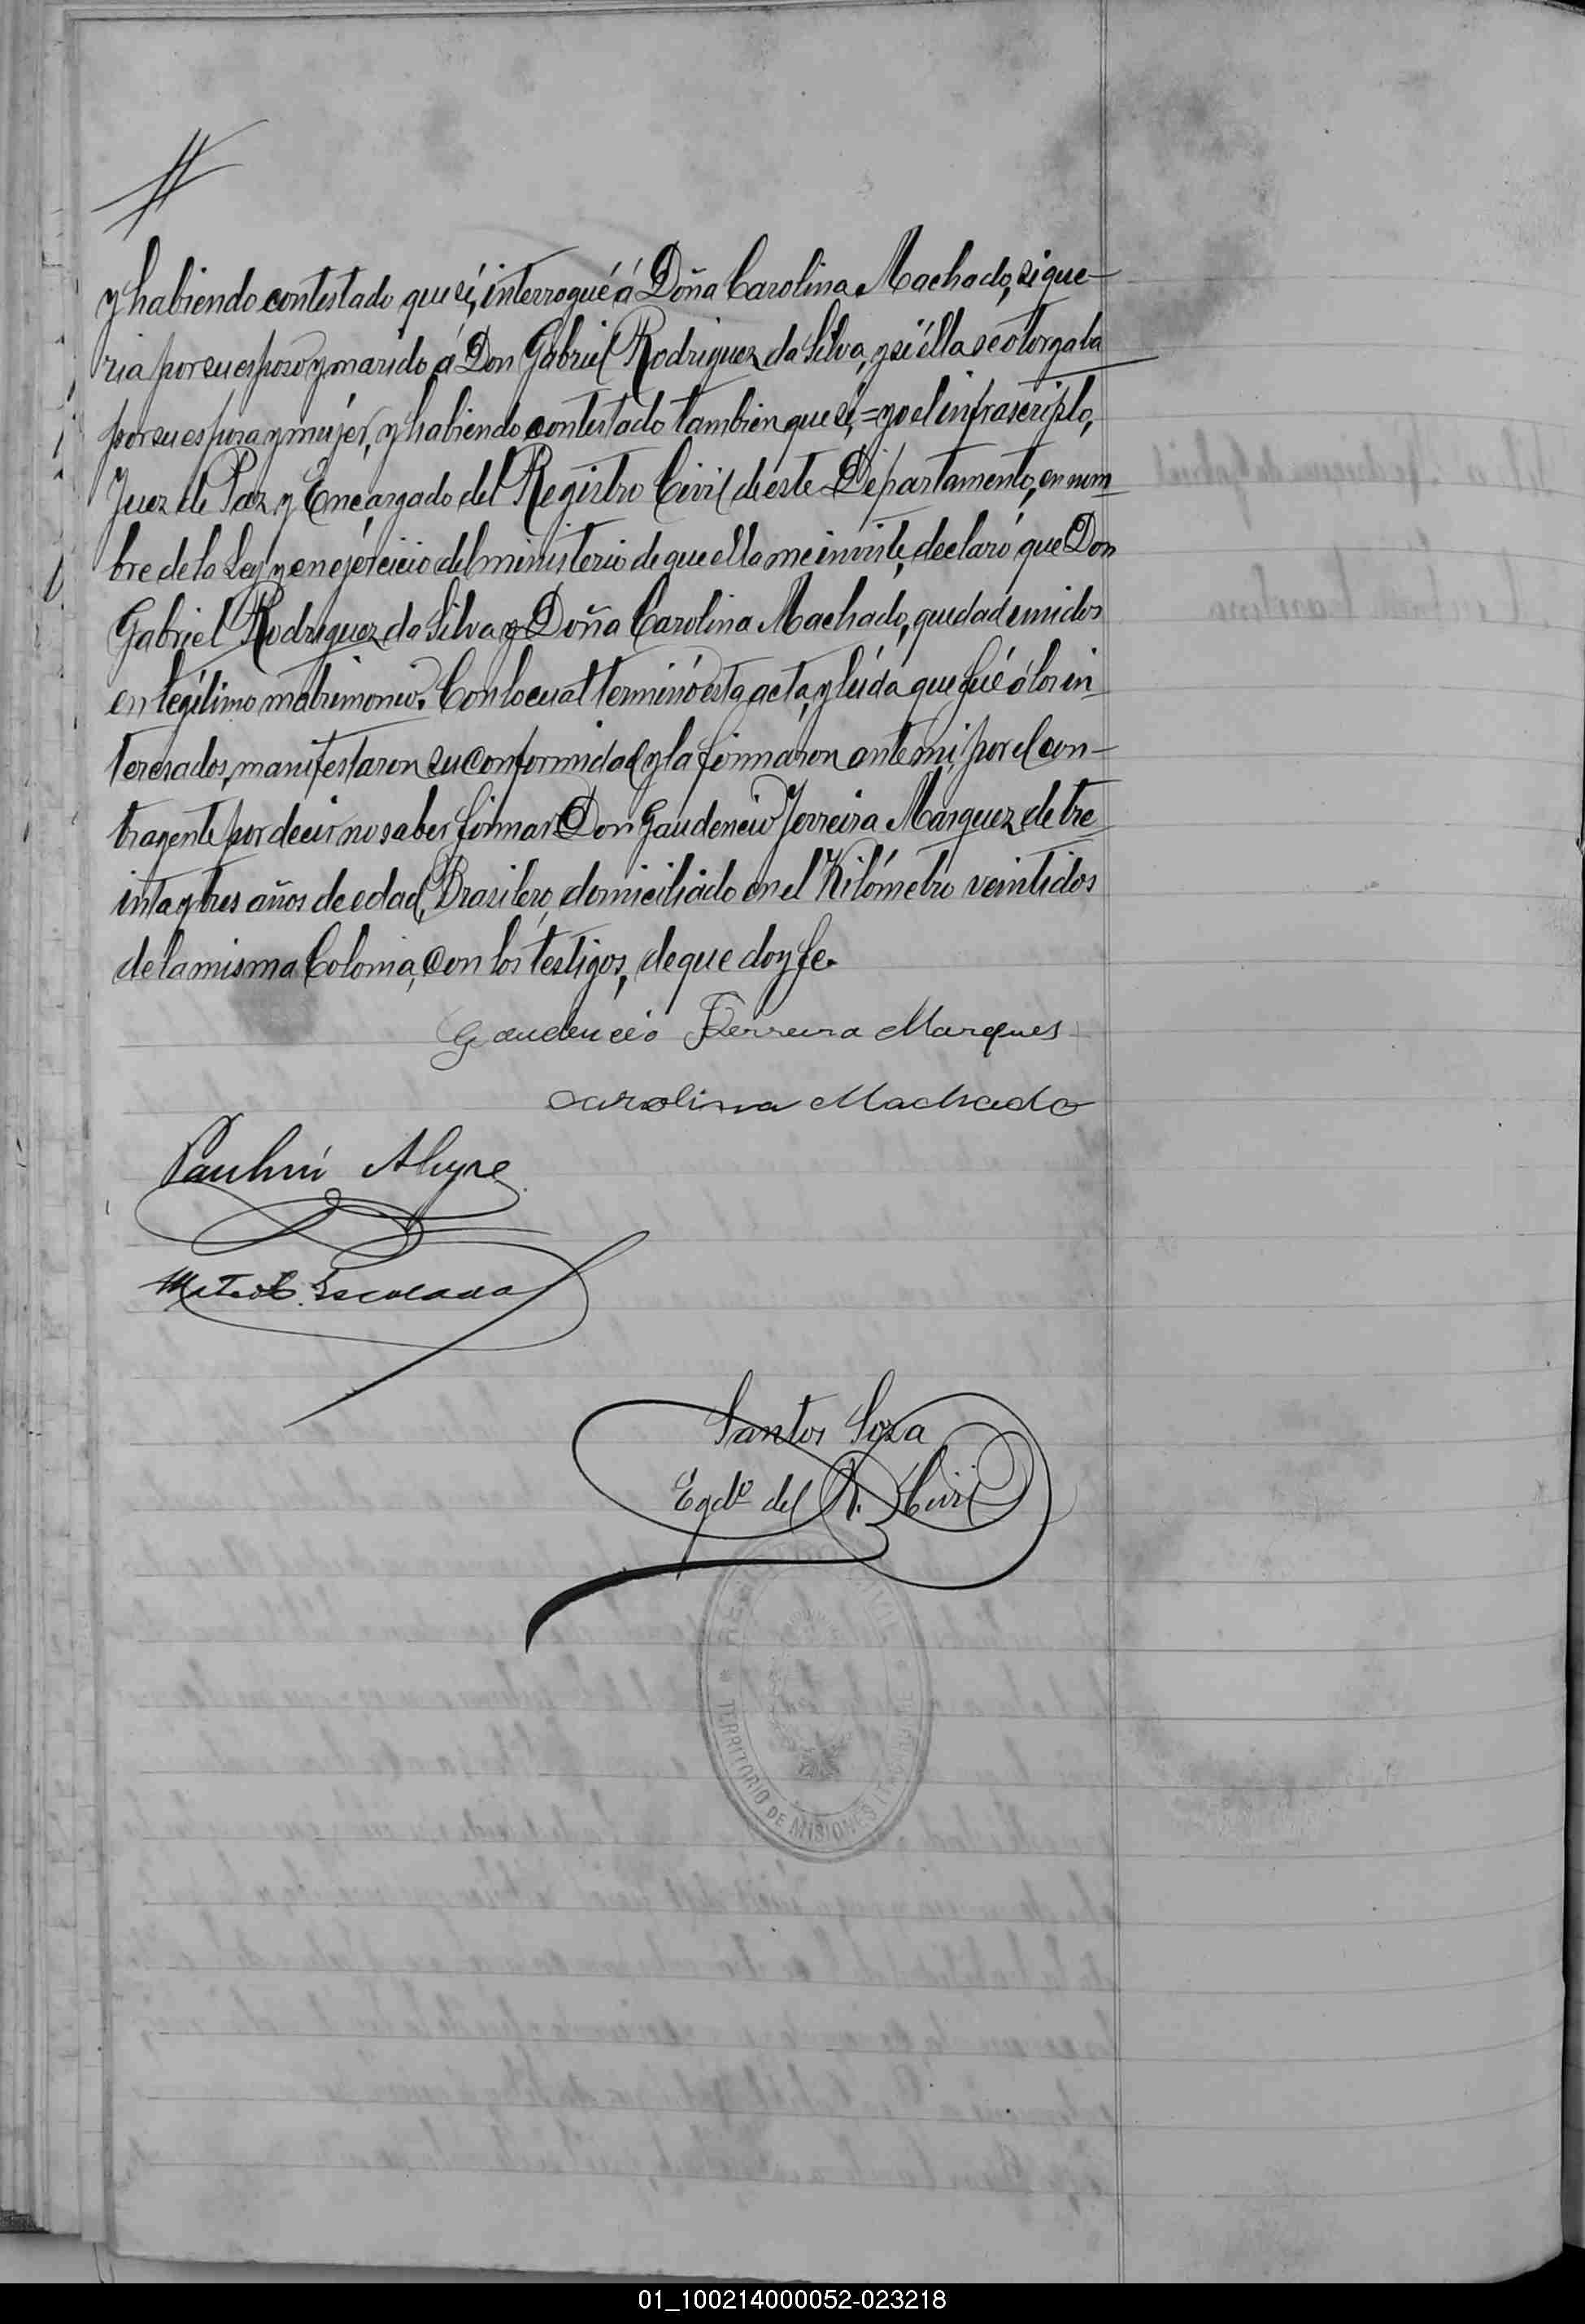 y habiendo contestado que sí, interrogué á Doña Carolina Machado, si que-
ria por su esposo y marido á Don Gabriel Rodriguez da Silva, y si ella se otorgaba
por su esposa y mujer, y habiendo contestado tambien que sí, = yo el infrascripto,
Juez de Paz y Encargado del Registro Civil de este Departamento, en nom
bre de la Ley y en ejercicio del ministerio de que ella me inviste, declaró que Don
Gabriel Rodriguez da Silva y Doña Carolina Machado, quedad unidos
en legítimo matrimonio. Con lo cual terminó esta acta, y leída que fué á los in
teresados, manifestaron su conformidad y la firmaron ante mí, por el con-
trayente por decir no saber firmar Don Gaudencio Ferreira Marquez de tre
inta y tres años de edad, Brasilero, domiciliado en el Kilómetro veintidos
de la misma Colonia, con los testigos, de que doy fe.
Gaudencio Ferreira Marques
Carolina Machado
Paulini Alegre
Mateo Escalada
Santos Soza
Egdo del R. Civil
REGISTRO CIVIL
TERRITORIO DE MISIONES
01_100214000052-023218